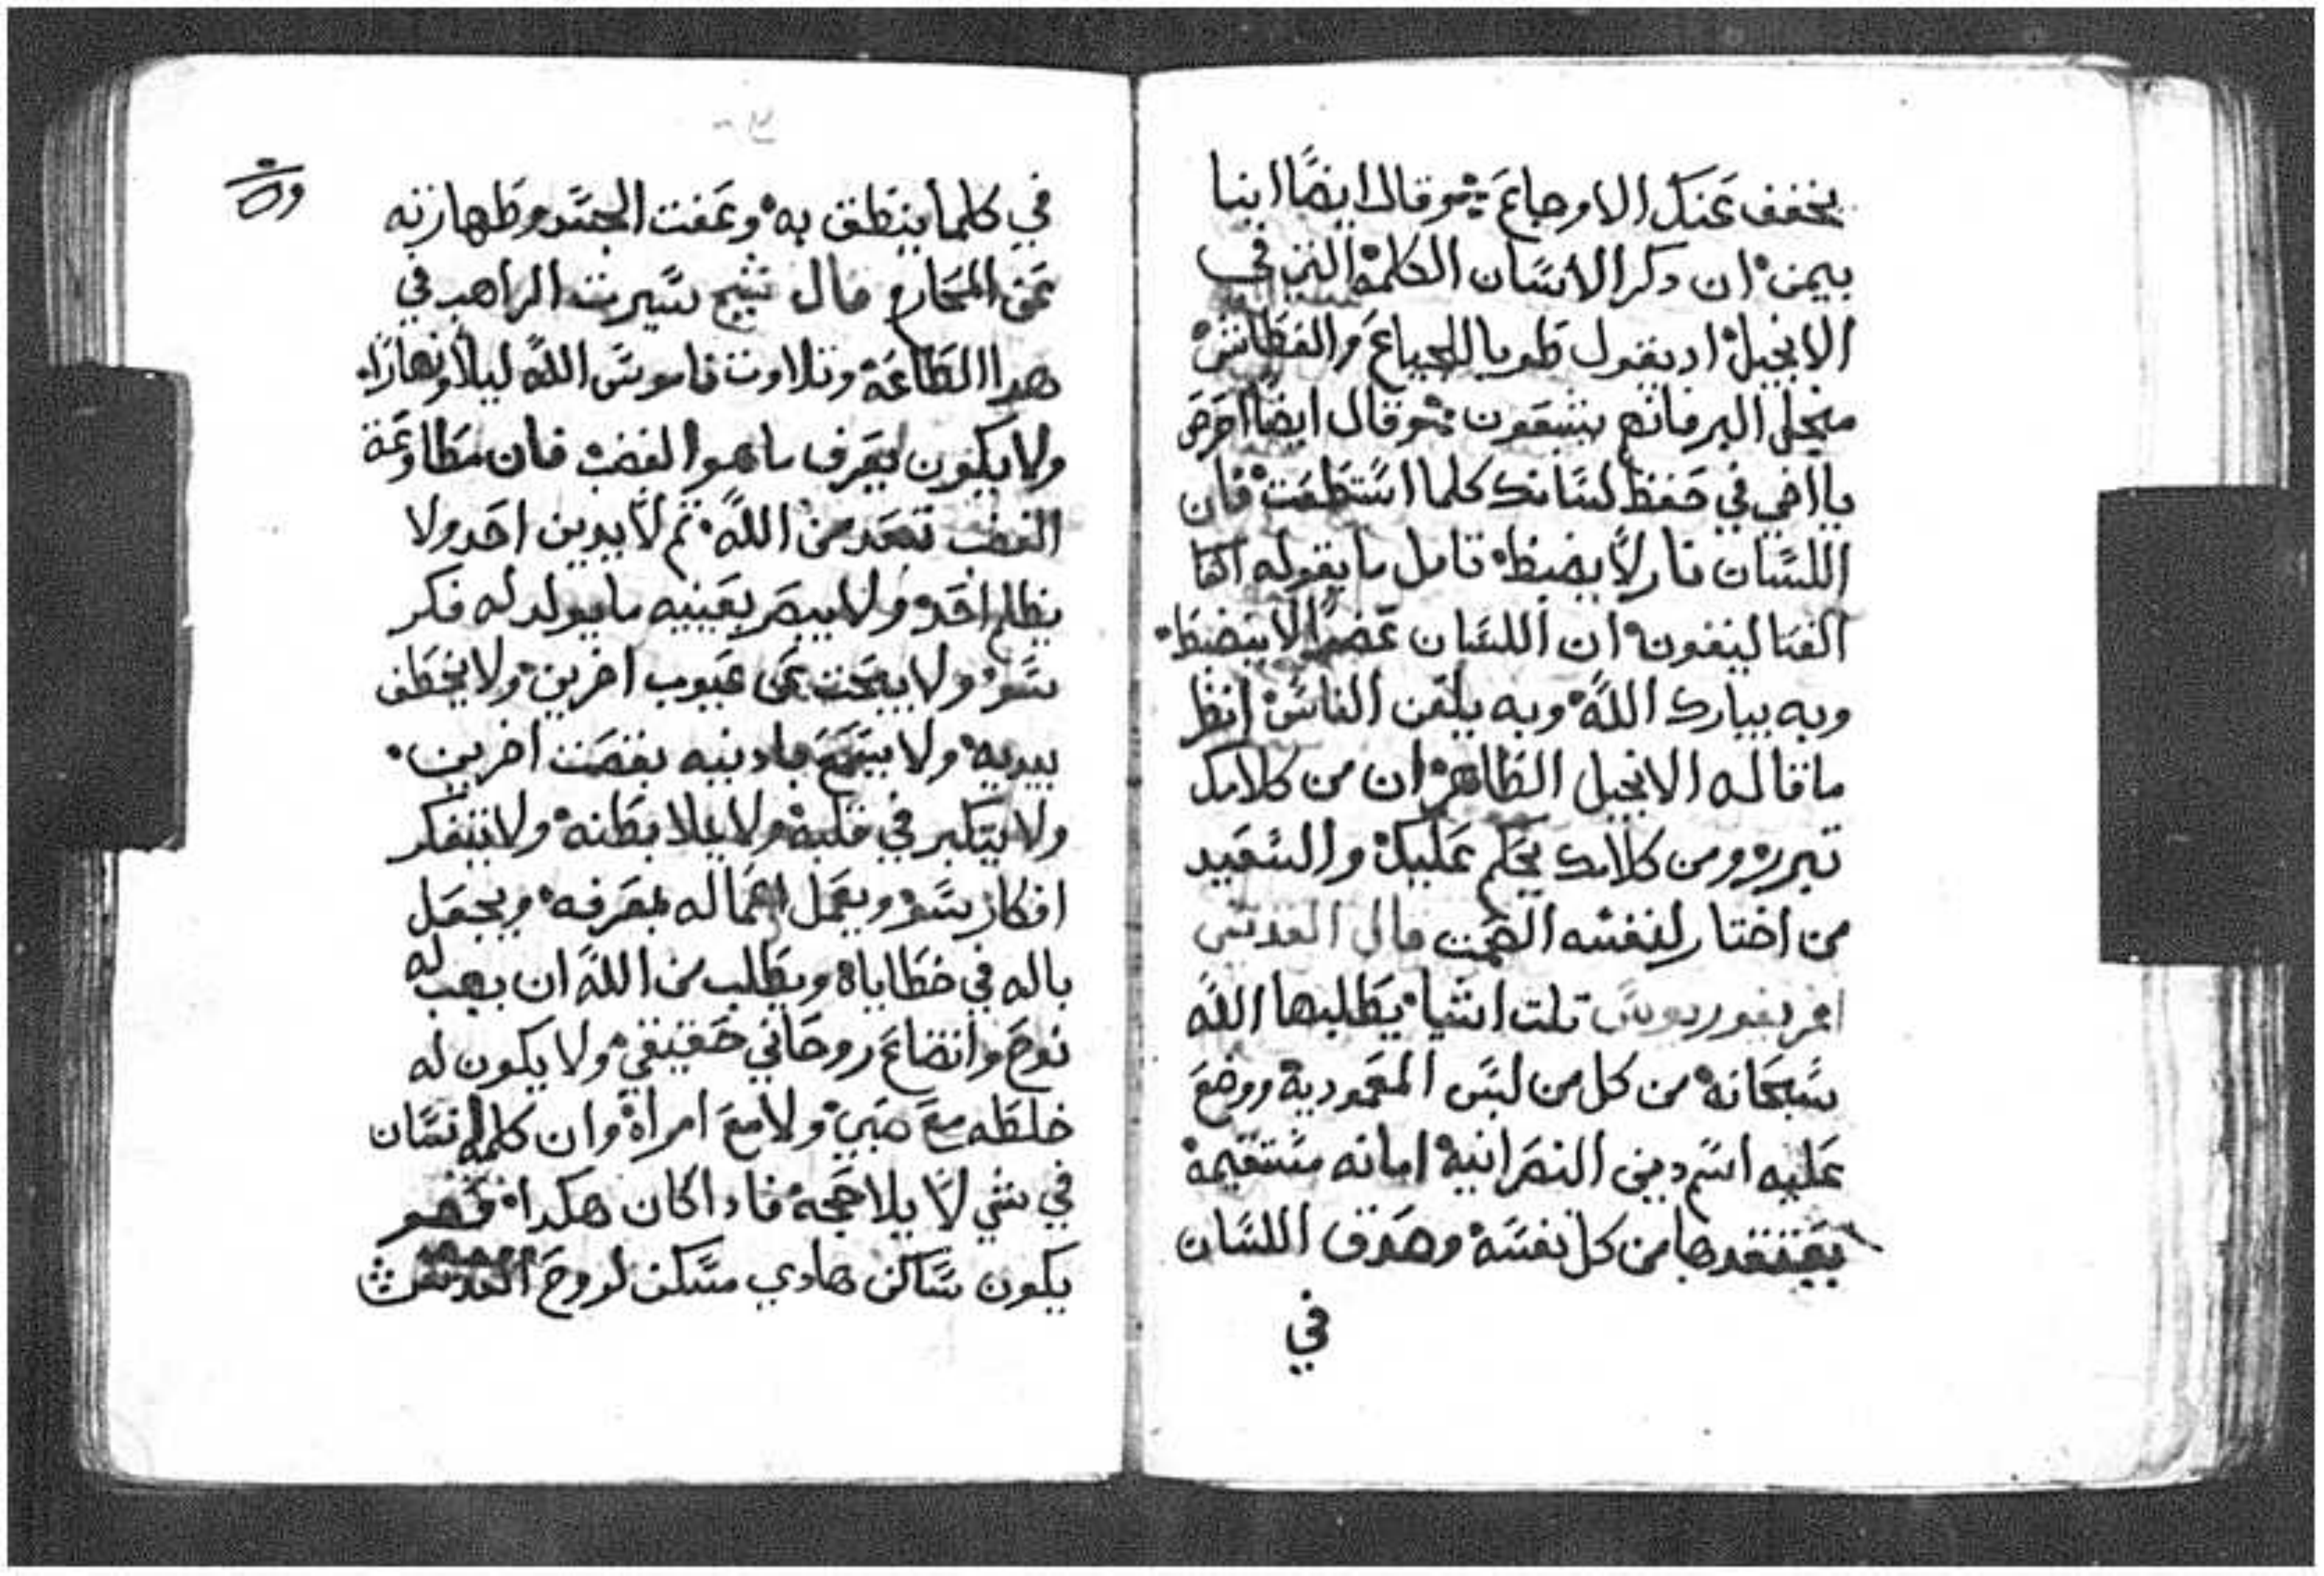 يخفف عنك الاوجاع وقال ايضًا انبا
بيمن ان دكر الانسان الكلمة التي في
الانجيل اد يقول طوبا للجياع والعطاش
منجل البر فانهم يشبعون وقال ايضًا احرص
يا اخي في حفظ لسانك كلما استطعت فان
اللسان نار لا يضبظ تامل ما يقوله
ان اللسان عضوًا لا ينضبظ
وبه يبارك الله وبه يلعن الناس انظر
ما قاله الانجيل الظاهر ان من كلامك
تبرر ومن كلامك يحكم عليك والسعيد
من اختار لنفسه الصمت قال القديس
اغريغوريوس تلت اشيا يطلبها الله
سبحانه من كل من لبس المعمودية ووضع
عليه اسم دين النصرانية امانه مستقيمة
يعتقدها من كل نفسه وصدق اللسان
في
في كلما ينطق به وعفت الجسد وطهارته
عن المحارم قال شيخ سيرت الراهب في
هدا الطاعة وتلاوت ناموس الله ليلاً ونهارًا
ولا يكون يعرف ما هو الغضب فان مطاوعة
الغضب تبعد من الله تم لا يدين احد ولا
يظلم احد ولا يبصر بعينيه ما يولد له فكر
سو ولا يبحت عن عيوب اخرين ولا يخطف
بيديه ولا يسمع بادنيه نقصت اخرين
ولا يتكبر في قلبه ولا يملا بطنه ولا يتفكر
افكار سو ويعمل اعماله بمعرفه ويجعل
باله في خطاياه ويطلب من الله ان يهب له
نوح واتضاع روحاني حقيقي ولا يكون له
خلطه مع صبي ولا مع امراة وان كلمه انسان
في شي لا يلاججه فادا كان هكدا فهو
يكون ساكن هادي مسكن لروح القدس